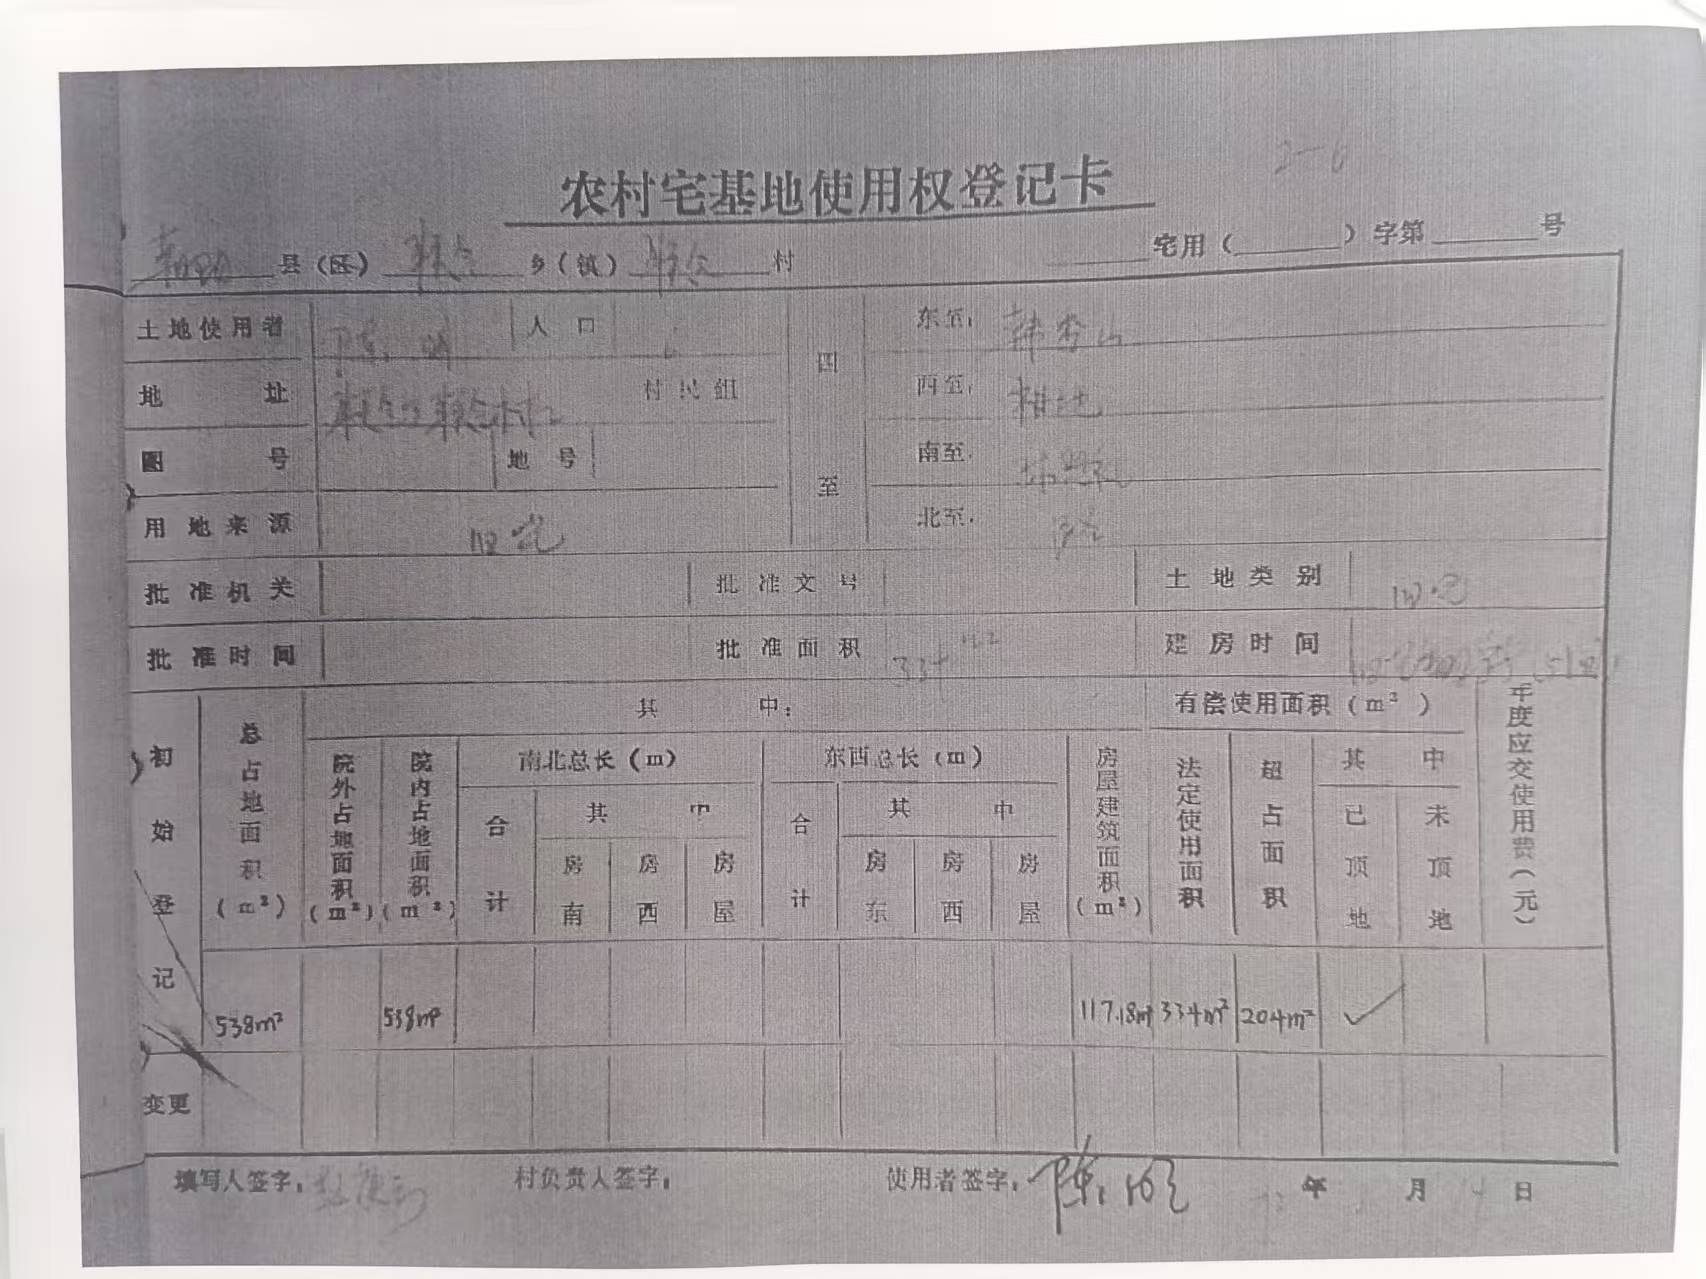 2-6
农村宅基地使用权登记卡
朝阳 县（区） 联合 乡（镇） 联合 村 宅用（ ）字第 号
土地使用者 陈明 人口 四至 东至：韩秀山
地址 联合乡联合村 村民组 西至：耕地
图号 地号 南至：
用地来源 旧宅 北至：路
批准机关 批准文号 土地类别 旧宅
批准时间 批准面积 334m² 建房时间
初始登记 总占地面积（m²） 其中： 有偿使用面积（m²） 年度应交使用费（元）
院外占地面积（m²） 院内占地面积（m²） 南北总长（m） 东西总长（m） 房屋建筑面积（m²） 法定使用面积 超占面积 其中
合计 其中 合计 其中 已顶地 未顶地
房南 房西 房屋 房东 房西 房屋
538m² 538m² 117.18m² 334m² 204m² ✓
变更
填写人签字： 村负责人签字： 使用者签字：陈明 年 月 14 日